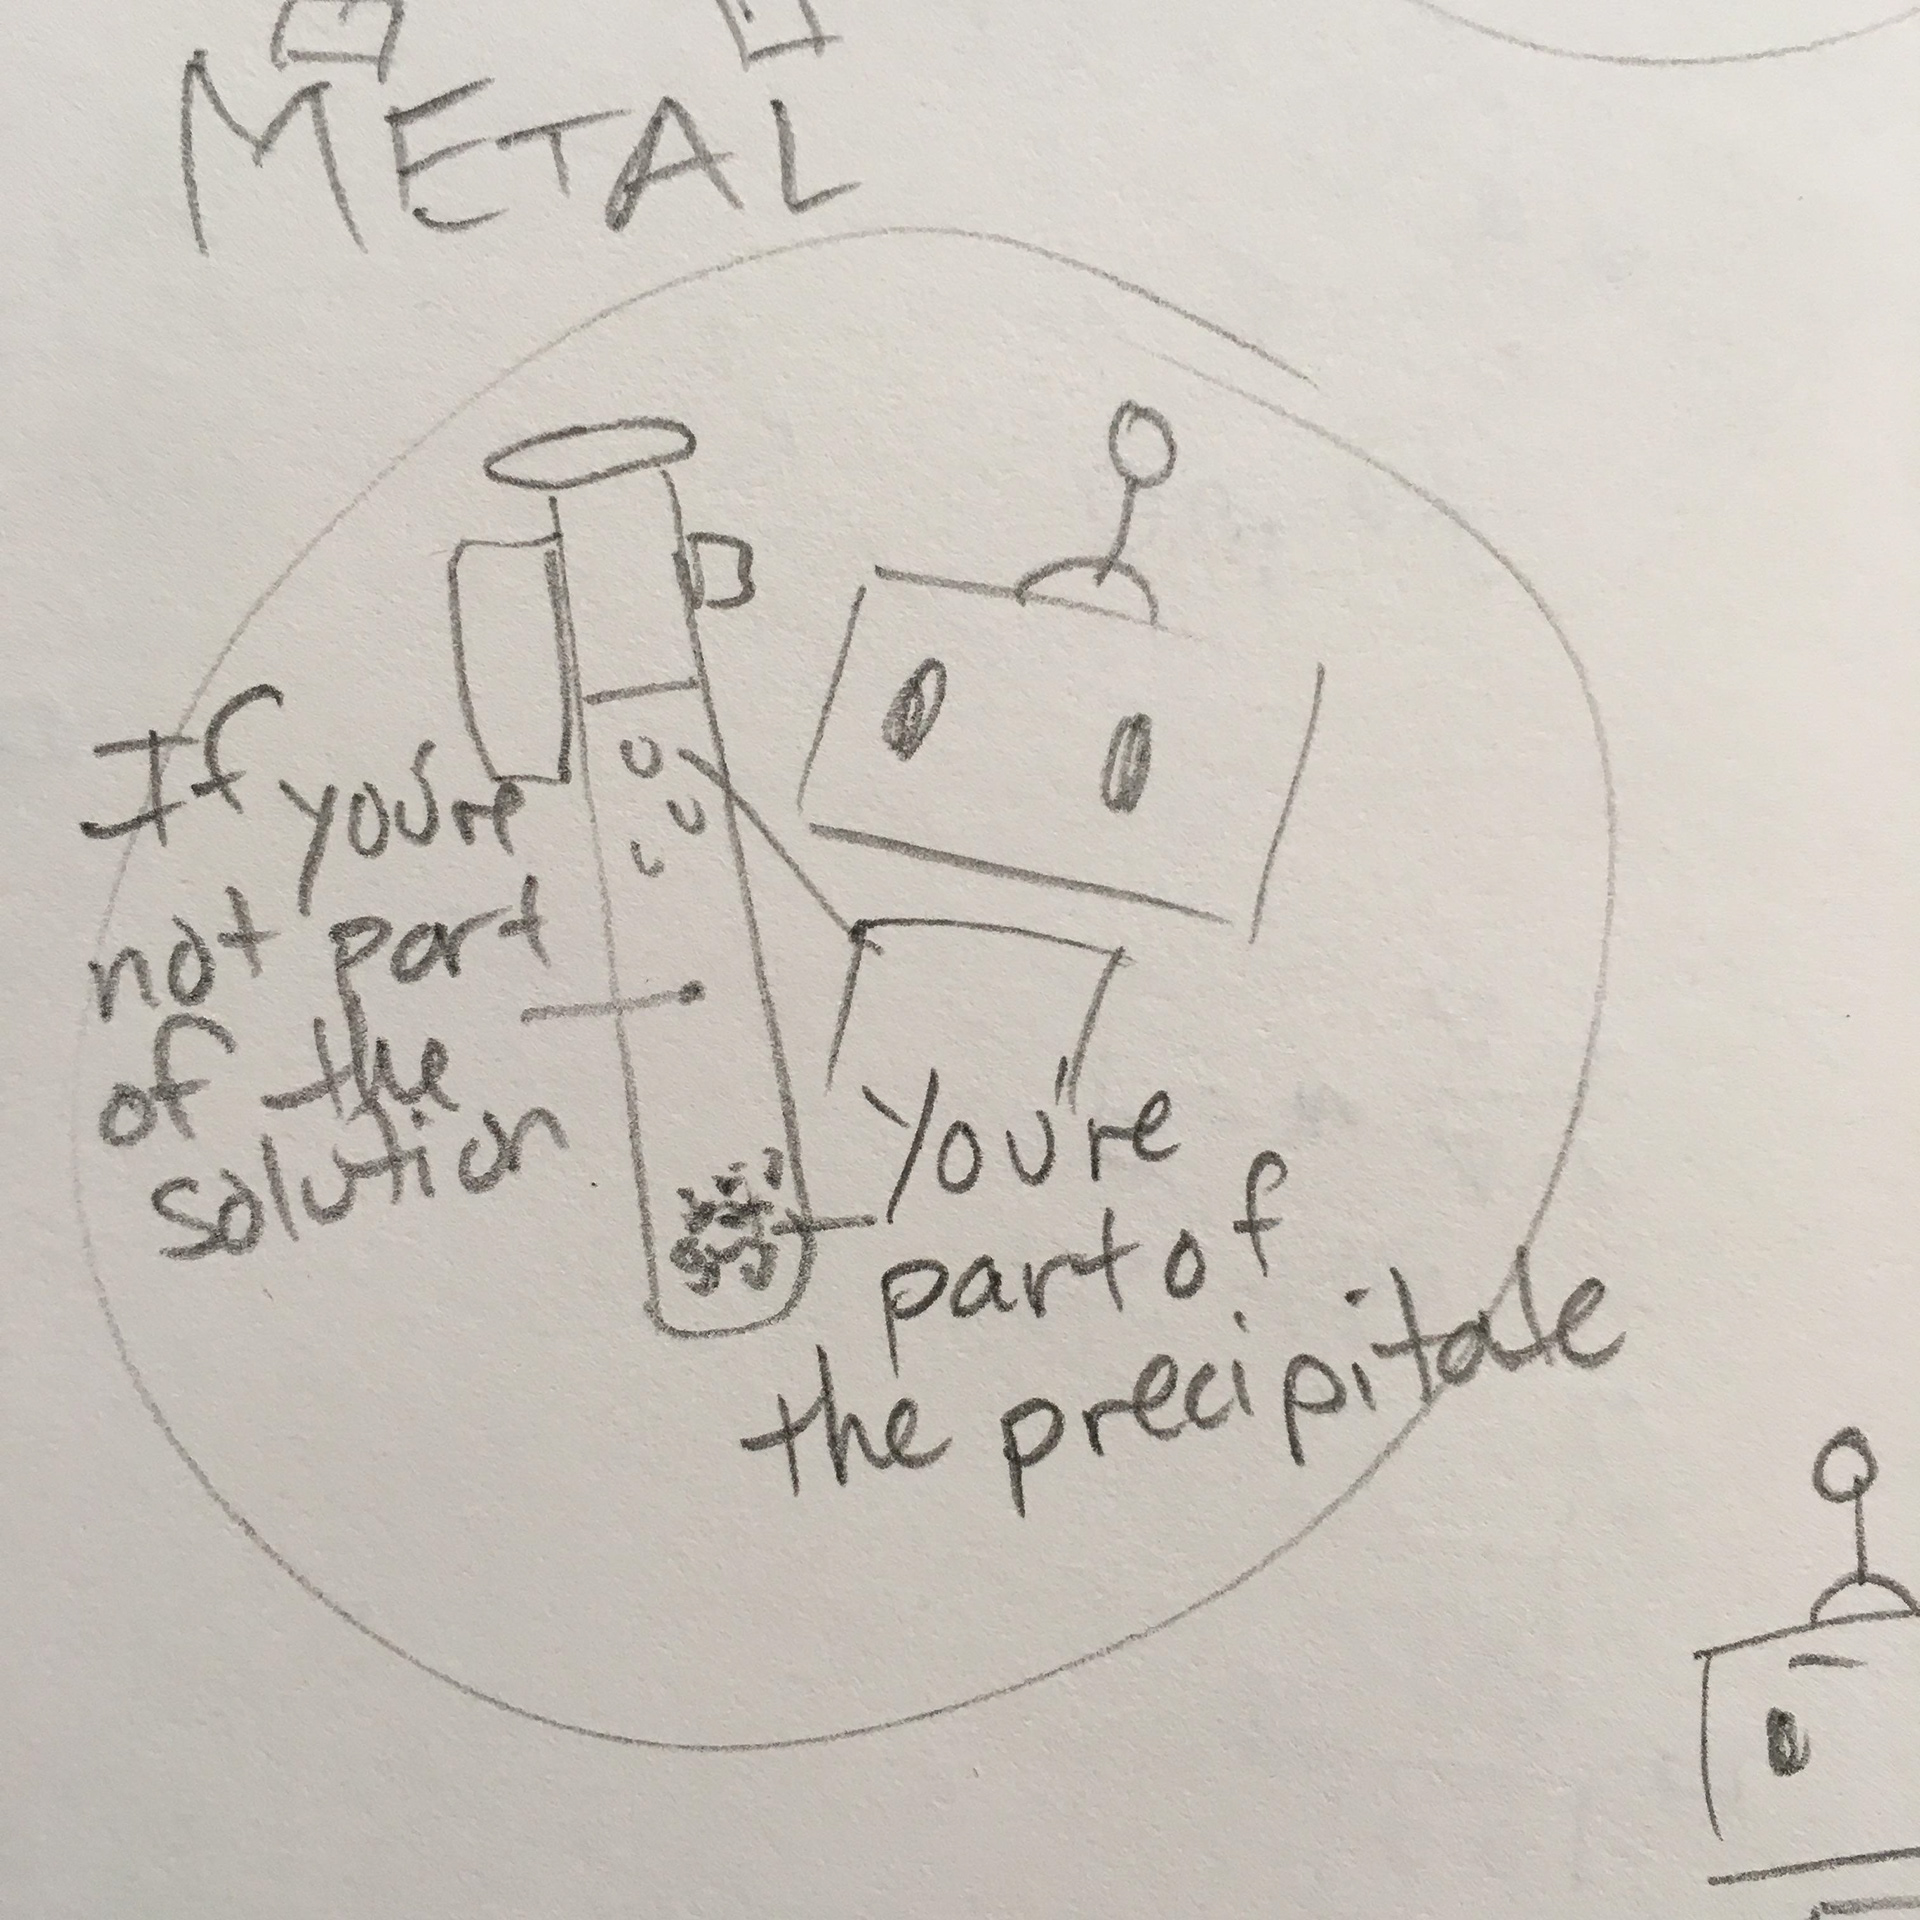 METAL
If you're
not part
of the
solution
You're
part of
the precipitate